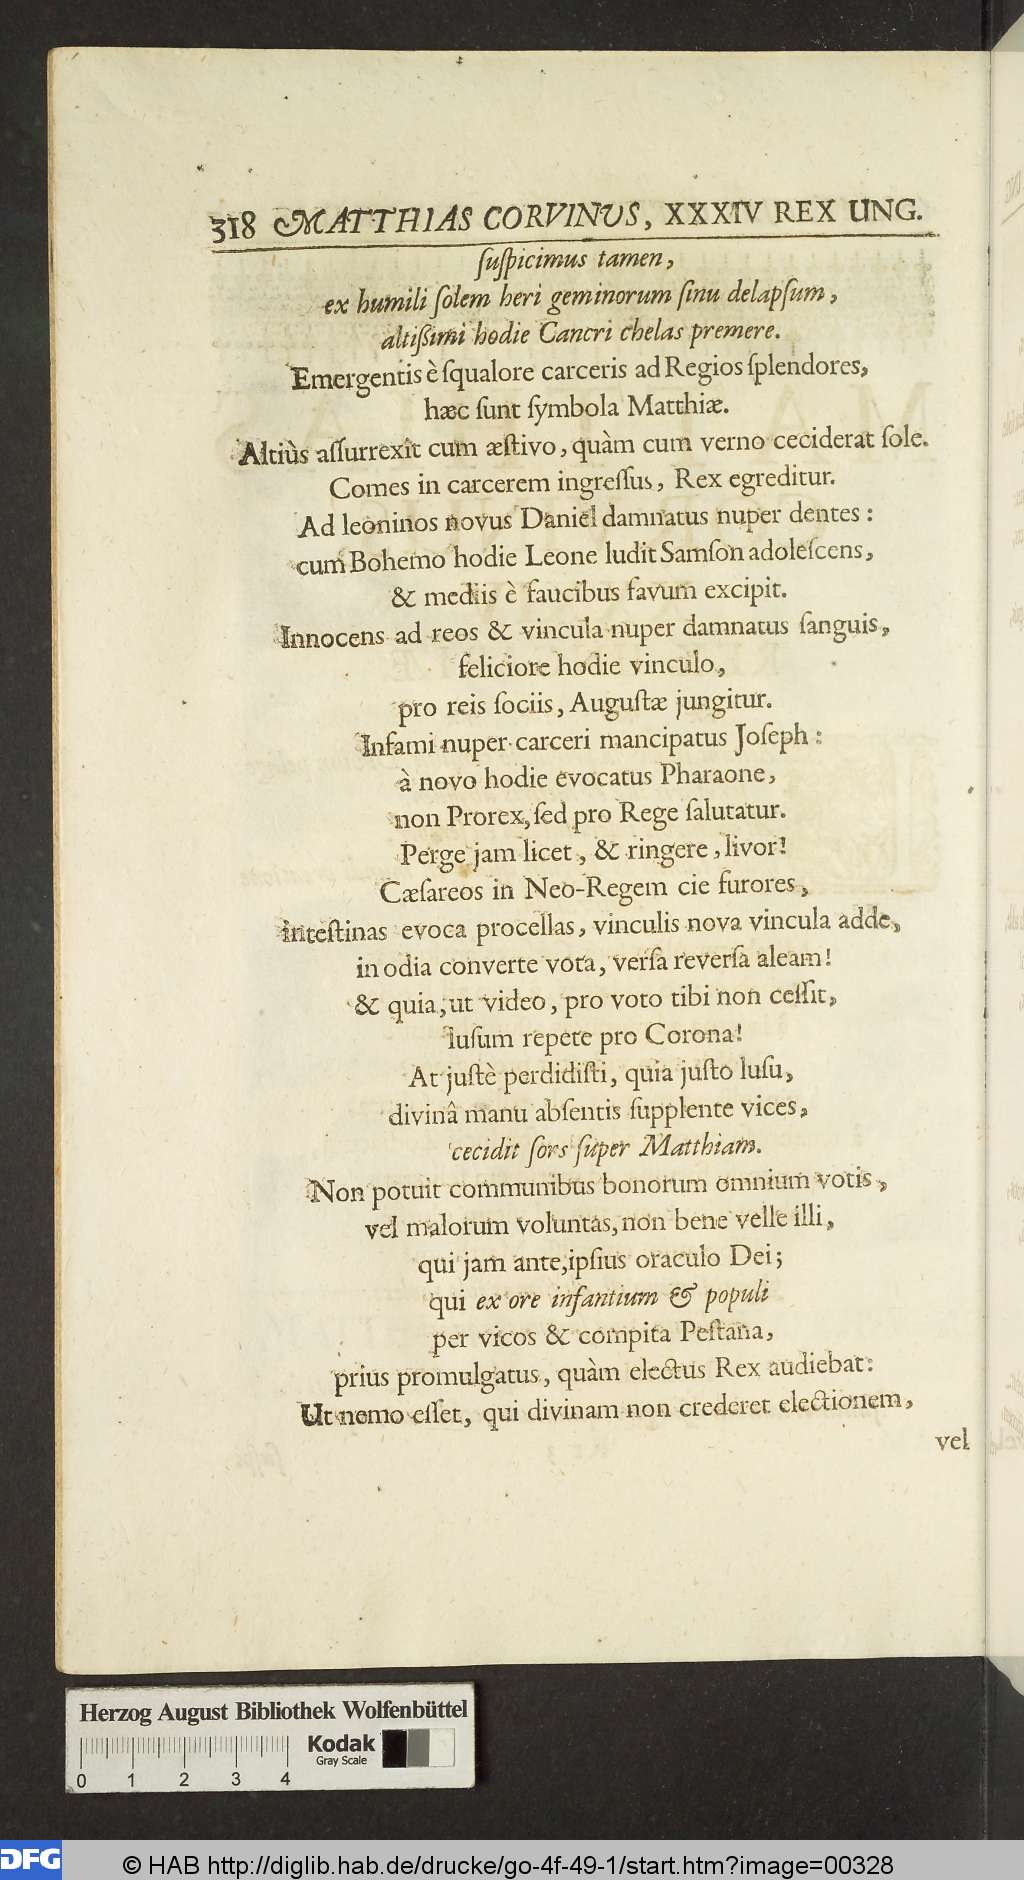 318 MATTHIAS CORVINUS, XXXIV REX UNG.
ſuſpicimus tamen,
ex humili ſolem heri geminorum ſinu delapſum,
altißimi hodie Cancri chelas premere.
Emergentis è ſqualore carceris ad Regios ſplendores,
hæc ſunt ſymbola Matthiæ.
Altiùs aſſurrexit cum æſtivo, quàm cum verno ceciderat ſole.
Comes in carcerem ingreſſus, Rex egreditur.
Ad leoninos novus Daniel damnatus nuper dentes:
cum Bohemo hodie Leone ludit Samſon adoleſcens,
& mediis è faucibus favum excipit.
Innocens ad reos & vincula nuper damnatus ſanguis,
feliciore hodie vinculo,
pro reis ſociis, Auguſtæ jungitur.
Infami nuper carceri mancipatus Joſeph:
à novo hodie evocatus Pharaone,
non Prorex, ſed pro Rege ſalutatur.
Perge jam licet, & ringere, livor!
Cæſareos in Neo-Regem cie furores,
inteſtinas evoca procellas, vinculis nova vincula adde,
in odia converte vota, verſa reverſa aleam!
& quia, ut video, pro voto tibi non ceſſit,
luſum repete pro Corona!
At juſtè perdidiſti, quia juſto luſu,
divinâ manu abſentis ſupplente vices,
cecidit ſors ſuper Matthiam.
Non potuit communibus bonorum omnium votis,
vel malorum voluntas, non bene velle illi,
qui jam ante, ipſius oraculo Dei;
qui ex ore infantium & populi
per vicos & compita Peſtana,
prius promulgatus, quàm electus Rex audiebat:
Ut nemo eſſet, qui divinam non crederet electionem,
vel
Herzog August Bibliothek Wolfenbüttel
Kodak
Gray Scale
0 1 2 3 4
DFG
© HAB http://diglib.hab.de/drucke/go-4f-49-1/start.htm?image=00328